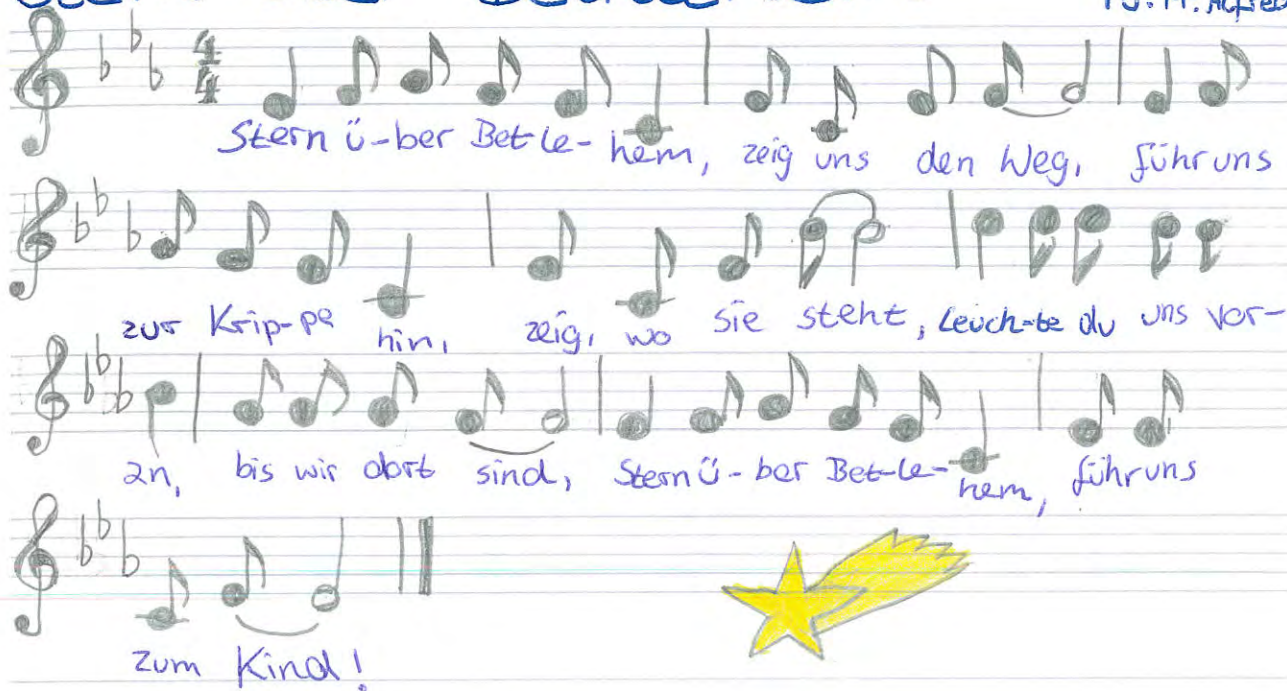 Stern ü-ber Bet-le-hem, zeig uns den Weg, führ uns
zur Krip-pe hin, zeig, wo sie steht, leuch-te du uns vor-
an, bis wir dort sind, Stern ü-ber Bet-le-hem, führ uns
zum Kind!